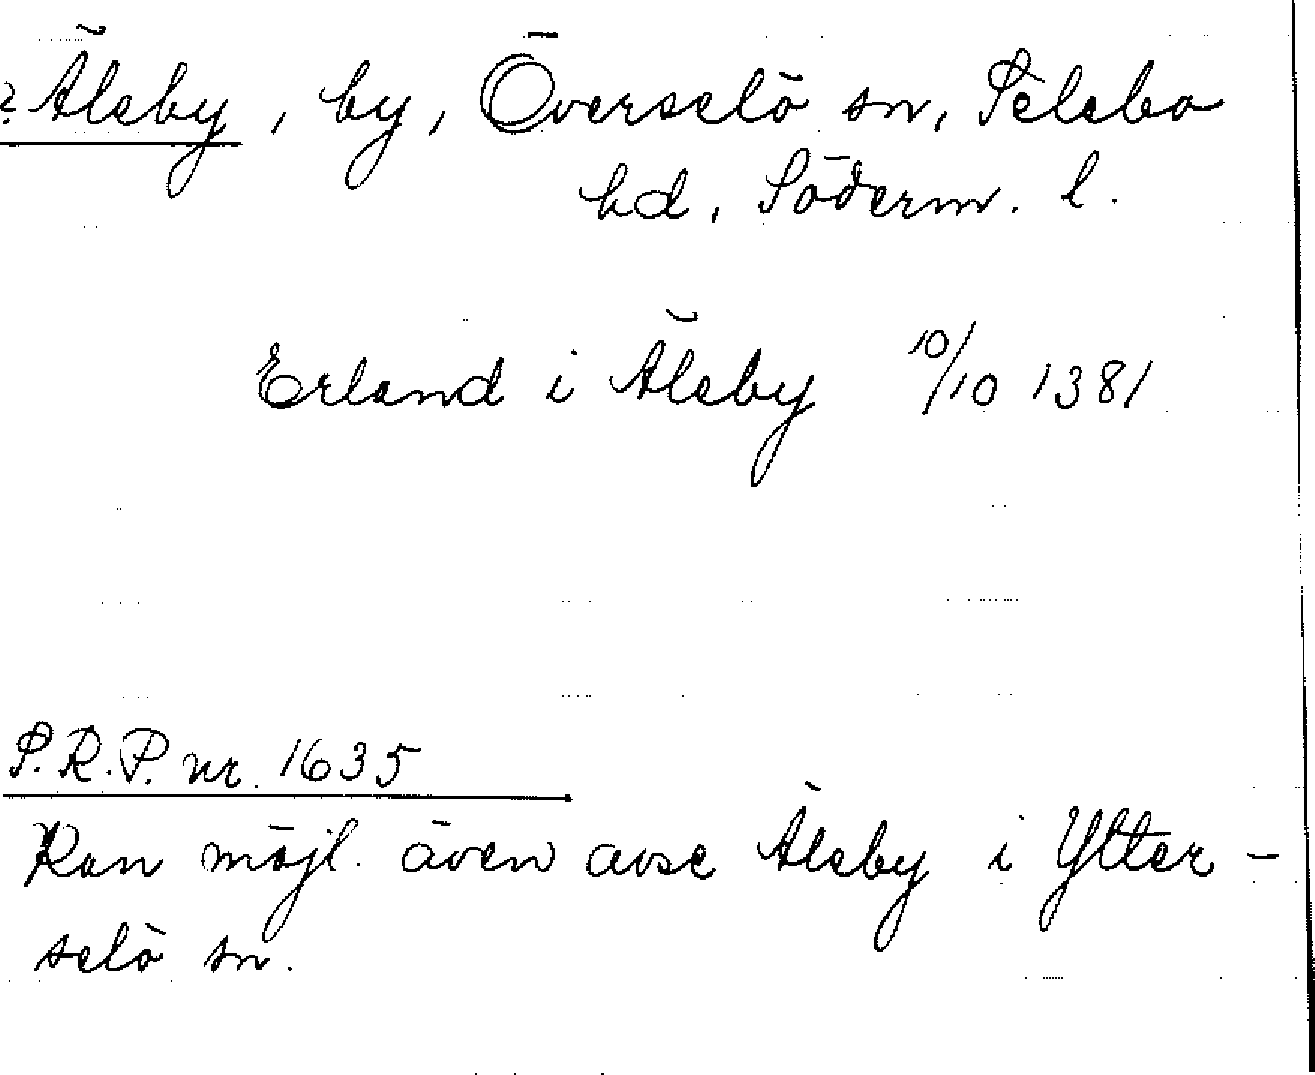 ? Älsby, by, Överselö sn, Selebo
hd, Söderm. l.
Erland i Älsby 10/10 1381
S.R.P. nr. 1635
Kan möjl. även avse Älsby i Ytter-
selö sn.